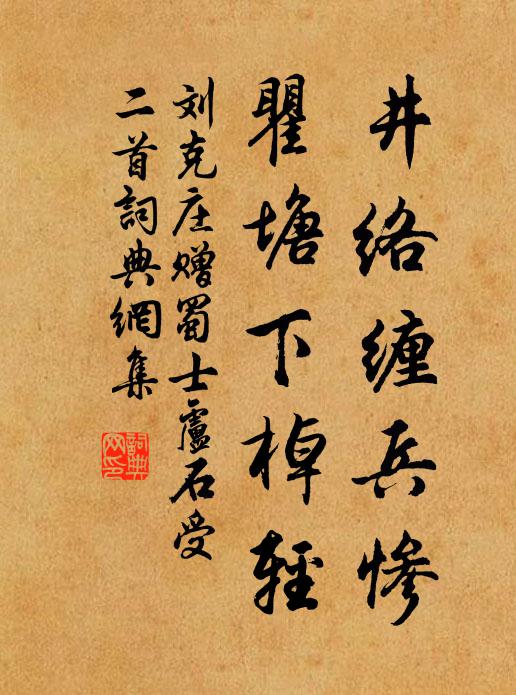 井络缠兵惨
瞿塘下棹轻
刘克庄赠蜀士盧石受
二首詞典網集
詞典网印